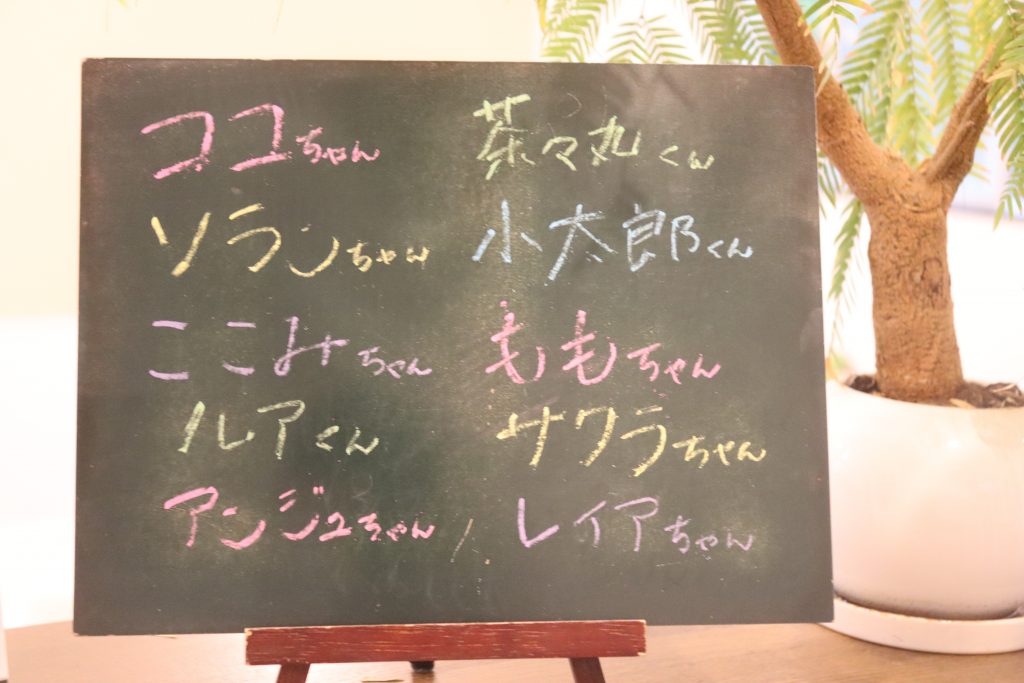 ココちゃん 茶々丸くん
ソランちゃん 小太郎くん
ここみちゃん ももちゃん
ルアくん サクラちゃん
アンジュちゃん / レイアちゃん